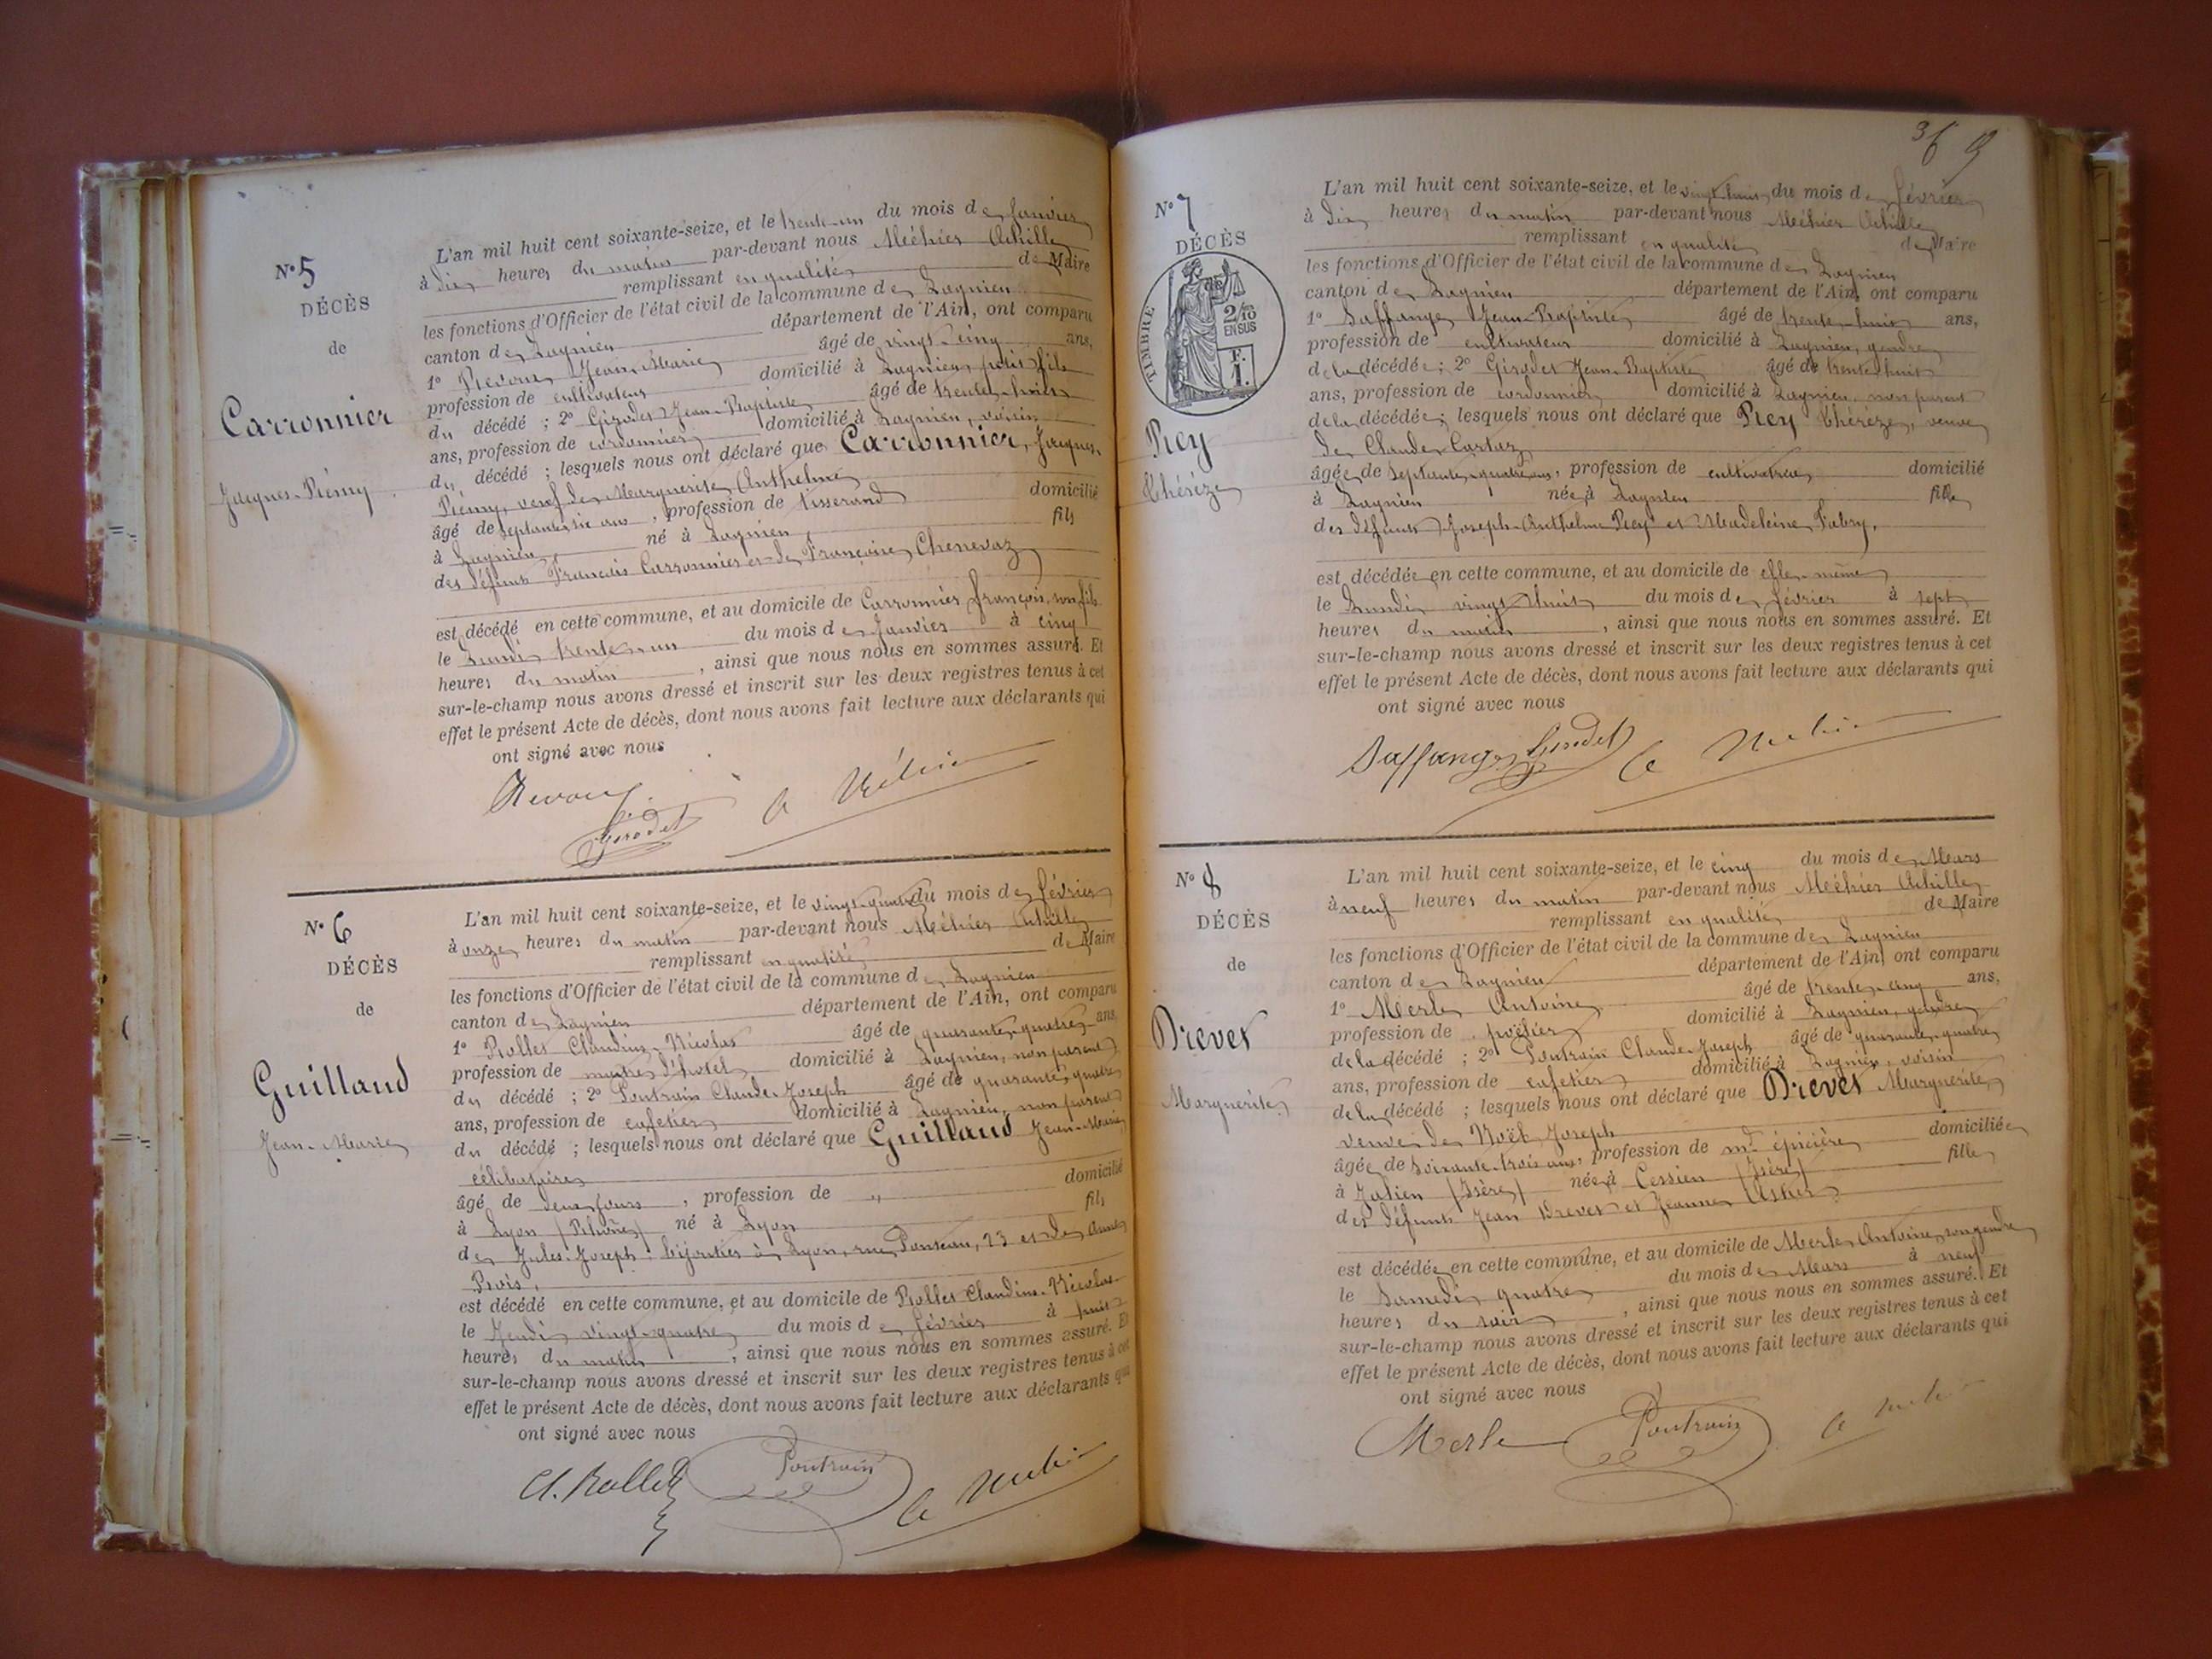 N° 5
DÉCÈS
de
Carronnier
Jacques-Rémy
L'an mil huit cent soixante-seize, et le trente-un du mois de Janvier
à dix heures du matin par-devant nous Méhier Achille
remplissant en qualité de Maire
les fonctions d'Officier de l'état civil de la commune de Lagnieu
canton de Lagnieu département de l'Ain, ont comparu
1° Jean-Marie âgé de vingt cinq ans,
profession de cultivateur domicilié à Lagnieu, petit fils
du décédé ; 2° Girodet Jean-Baptiste âgé de trente-huit
ans, profession de cordonnier domicilié à Lagnieu, voisin
du décédé ; lesquels nous ont déclaré que Carronnier, Jacques-
Rémy, veuf de Marguerite Anthelme
âgé de septante six ans, profession de tisserand domicilié
à Lagnieu né à Lagnieu fils
des défunts François Carronnier et de Françoise Chenevaz
est décédé en cette commune, et au domicile de Carronnier François, son fils
le Lundi trente-un du mois de Janvier à cinq
heures du matin, ainsi que nous nous en sommes assuré. Et
sur-le-champ nous avons dressé et inscrit sur les deux registres tenus à cet
effet le présent Acte de décès, dont nous avons fait lecture aux déclarants qui
ont signé avec nous
Girodet
N° 6
DÉCÈS
de
Guilland
Jean-Marie
L'an mil huit cent soixante-seize, et le vingt-quatre du mois de février
à onze heures du matin par-devant nous Méhier Achille
remplissant en qualité de Maire
les fonctions d'Officier de l'état civil de la commune de Lagnieu
canton de Lagnieu département de l'Ain, ont comparu
1° Rollet Claudius-Nicolas âgé de quarante-quatre ans,
profession de maître d'hôtel domicilié à Lagnieu, non parent
du décédé ; 2° Poutrain Claude-Joseph âgé de quarante-quatre
ans, profession de cafetier domicilié à Lagnieu, non parent
du décédé ; lesquels nous ont déclaré que Guilland Jean-Marie
célibataire
âgé de deux jours, profession de „ domicilié
à Lyon (Rhône) né à Lyon fils
de Jules-Joseph, bijoutier à Lyon, rue 23 et de
est décédé en cette commune, et au domicile de Rollet Claudius-Nicolas
le Jeudi vingt-quatre du mois de février à huit
heures du matin, ainsi que nous nous en sommes assuré. Et
sur-le-champ nous avons dressé et inscrit sur les deux registres tenus à cet
effet le présent Acte de décès, dont nous avons fait lecture aux déclarants qui
ont signé avec nous
Cl. Rollet Poutrain
36 9
N° 7
DÉCÈS
TIMBRE
2/10
EN SUS
F.
1.
Rey
Thérèze
L'an mil huit cent soixante-seize, et le vingt-huit du mois de février
à dix heures du matin par-devant nous Méhier Achille
remplissant en qualité de Maire
les fonctions d'Officier de l'état civil de la commune de Lagnieu
canton de Lagnieu département de l'Ain, ont comparu
1° Saffange Jean-Baptiste âgé de trente-huit ans,
profession de cultivateur domicilié à Lagnieu, gendre
de la décédée ; 2° Girodet Jean-Baptiste âgé de trente huit
ans, profession de cordonnier domicilié à Lagnieu, non parent
de la décédée ; lesquels nous ont déclaré que Rey Thérèze, veuve
de Claude Cartaz
âgée de septante-quatre ans, profession de cultivatrice domicilié
à Lagnieu née à Lagnieu fille
des défunts Joseph-Anthelme Rey et Madeleine Fabry,
est décédée en cette commune, et au domicile de elle-même
le Lundi vingt-huit du mois de février à sept
heures du matin, ainsi que nous nous en sommes assuré. Et
sur-le-champ nous avons dressé et inscrit sur les deux registres tenus à cet
effet le présent Acte de décès, dont nous avons fait lecture aux déclarants qui
ont signé avec nous
Saffange Girodet
N° 8
DÉCÈS
de
Drevet
Marguerite
L'an mil huit cent soixante-seize, et le cinq du mois de Mars
à neuf heures du matin par-devant nous Méhier Achille
remplissant en qualité de Maire
les fonctions d'Officier de l'état civil de la commune de Lagnieu
canton de Lagnieu département de l'Ain, ont comparu
1° Merle Antoine âgé de trente-cinq ans,
profession de domicilié à Lagnieu, gendre
de la décédé ; 2° Poutrain Claude-Joseph âgé de quarante-quatre
ans, profession de cafetier domicilié à Lagnieu, voisin
de la décédé ; lesquels nous ont déclaré que Drevet Marguerite,
veuve de Noël Joseph
âgée de soixante-trois ans, profession de mde épicière domiciliée
à (Isère) née à Cessieu (Isère) fille
des défunts Jean Drevet et Jeanne
est décédée en cette commune, et au domicile de Merle Antoine, son gendre
le Samedi quatre du mois de Mars à neuf
heures du soir, ainsi que nous nous en sommes assuré. Et
sur-le-champ nous avons dressé et inscrit sur les deux registres tenus à cet
effet le présent Acte de décès, dont nous avons fait lecture aux déclarants qui
ont signé avec nous
Merle Poutrain